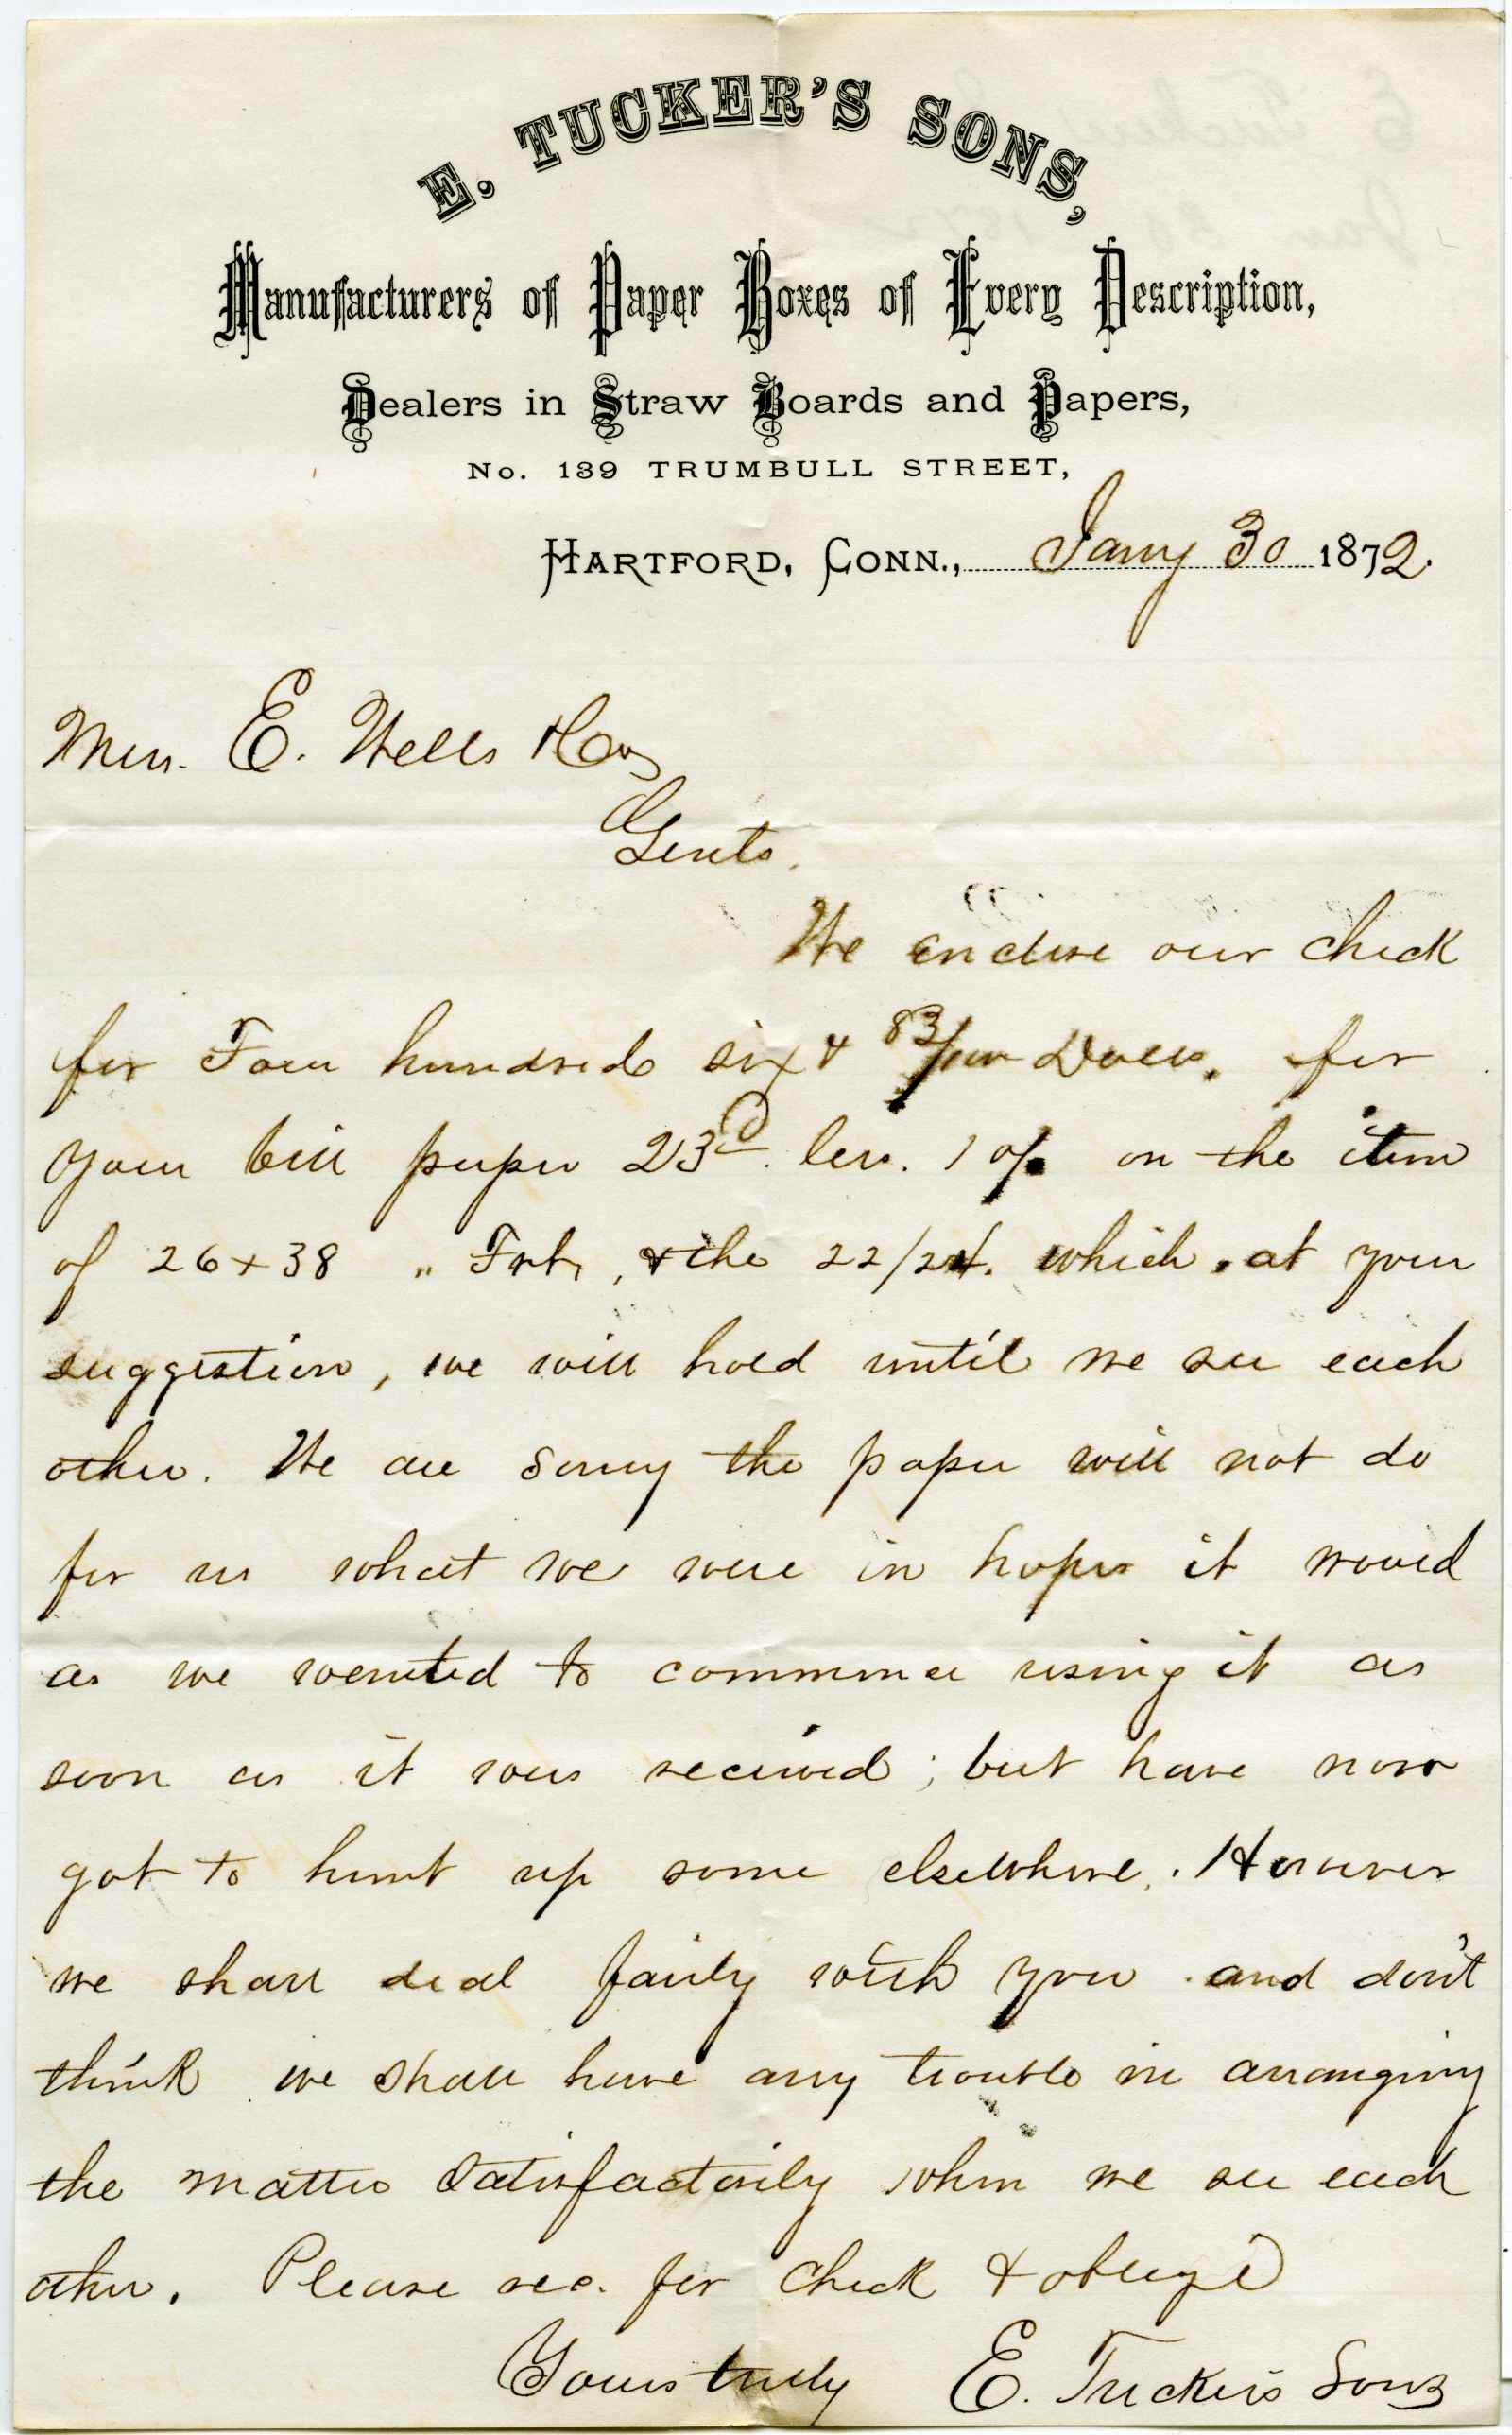 E. TUCKER'S SONS,
Manufacturers of Paper Boxes of Every Description,
Dealers in Straw Boards and Papers,
No. 139 TRUMBULL STREET,
HARTFORD, CONN., Jany 30 1872.
Mess. E. Wells & Co
Gents.
We enclose our check
for Four hundred six & 83/100 Dolls. for
your bill paper 23d. less. 1 o/o on the item
of 26 x 38 " Frt, & the 22/24. which, at your
suggestion, we will hold until we see each
other. We are sorry the paper will not do
for us what we were in hopes it would
as we wanted to commence using it as
soon as it was received; but have now
got to hunt up some elsewhere. However
we shall deal fairly with you and don't
think we shall have any trouble in arranging
the matter satisfactorily when we see each
other. Please rec. for check & oblige
Yours truly E. Tucker's Sons